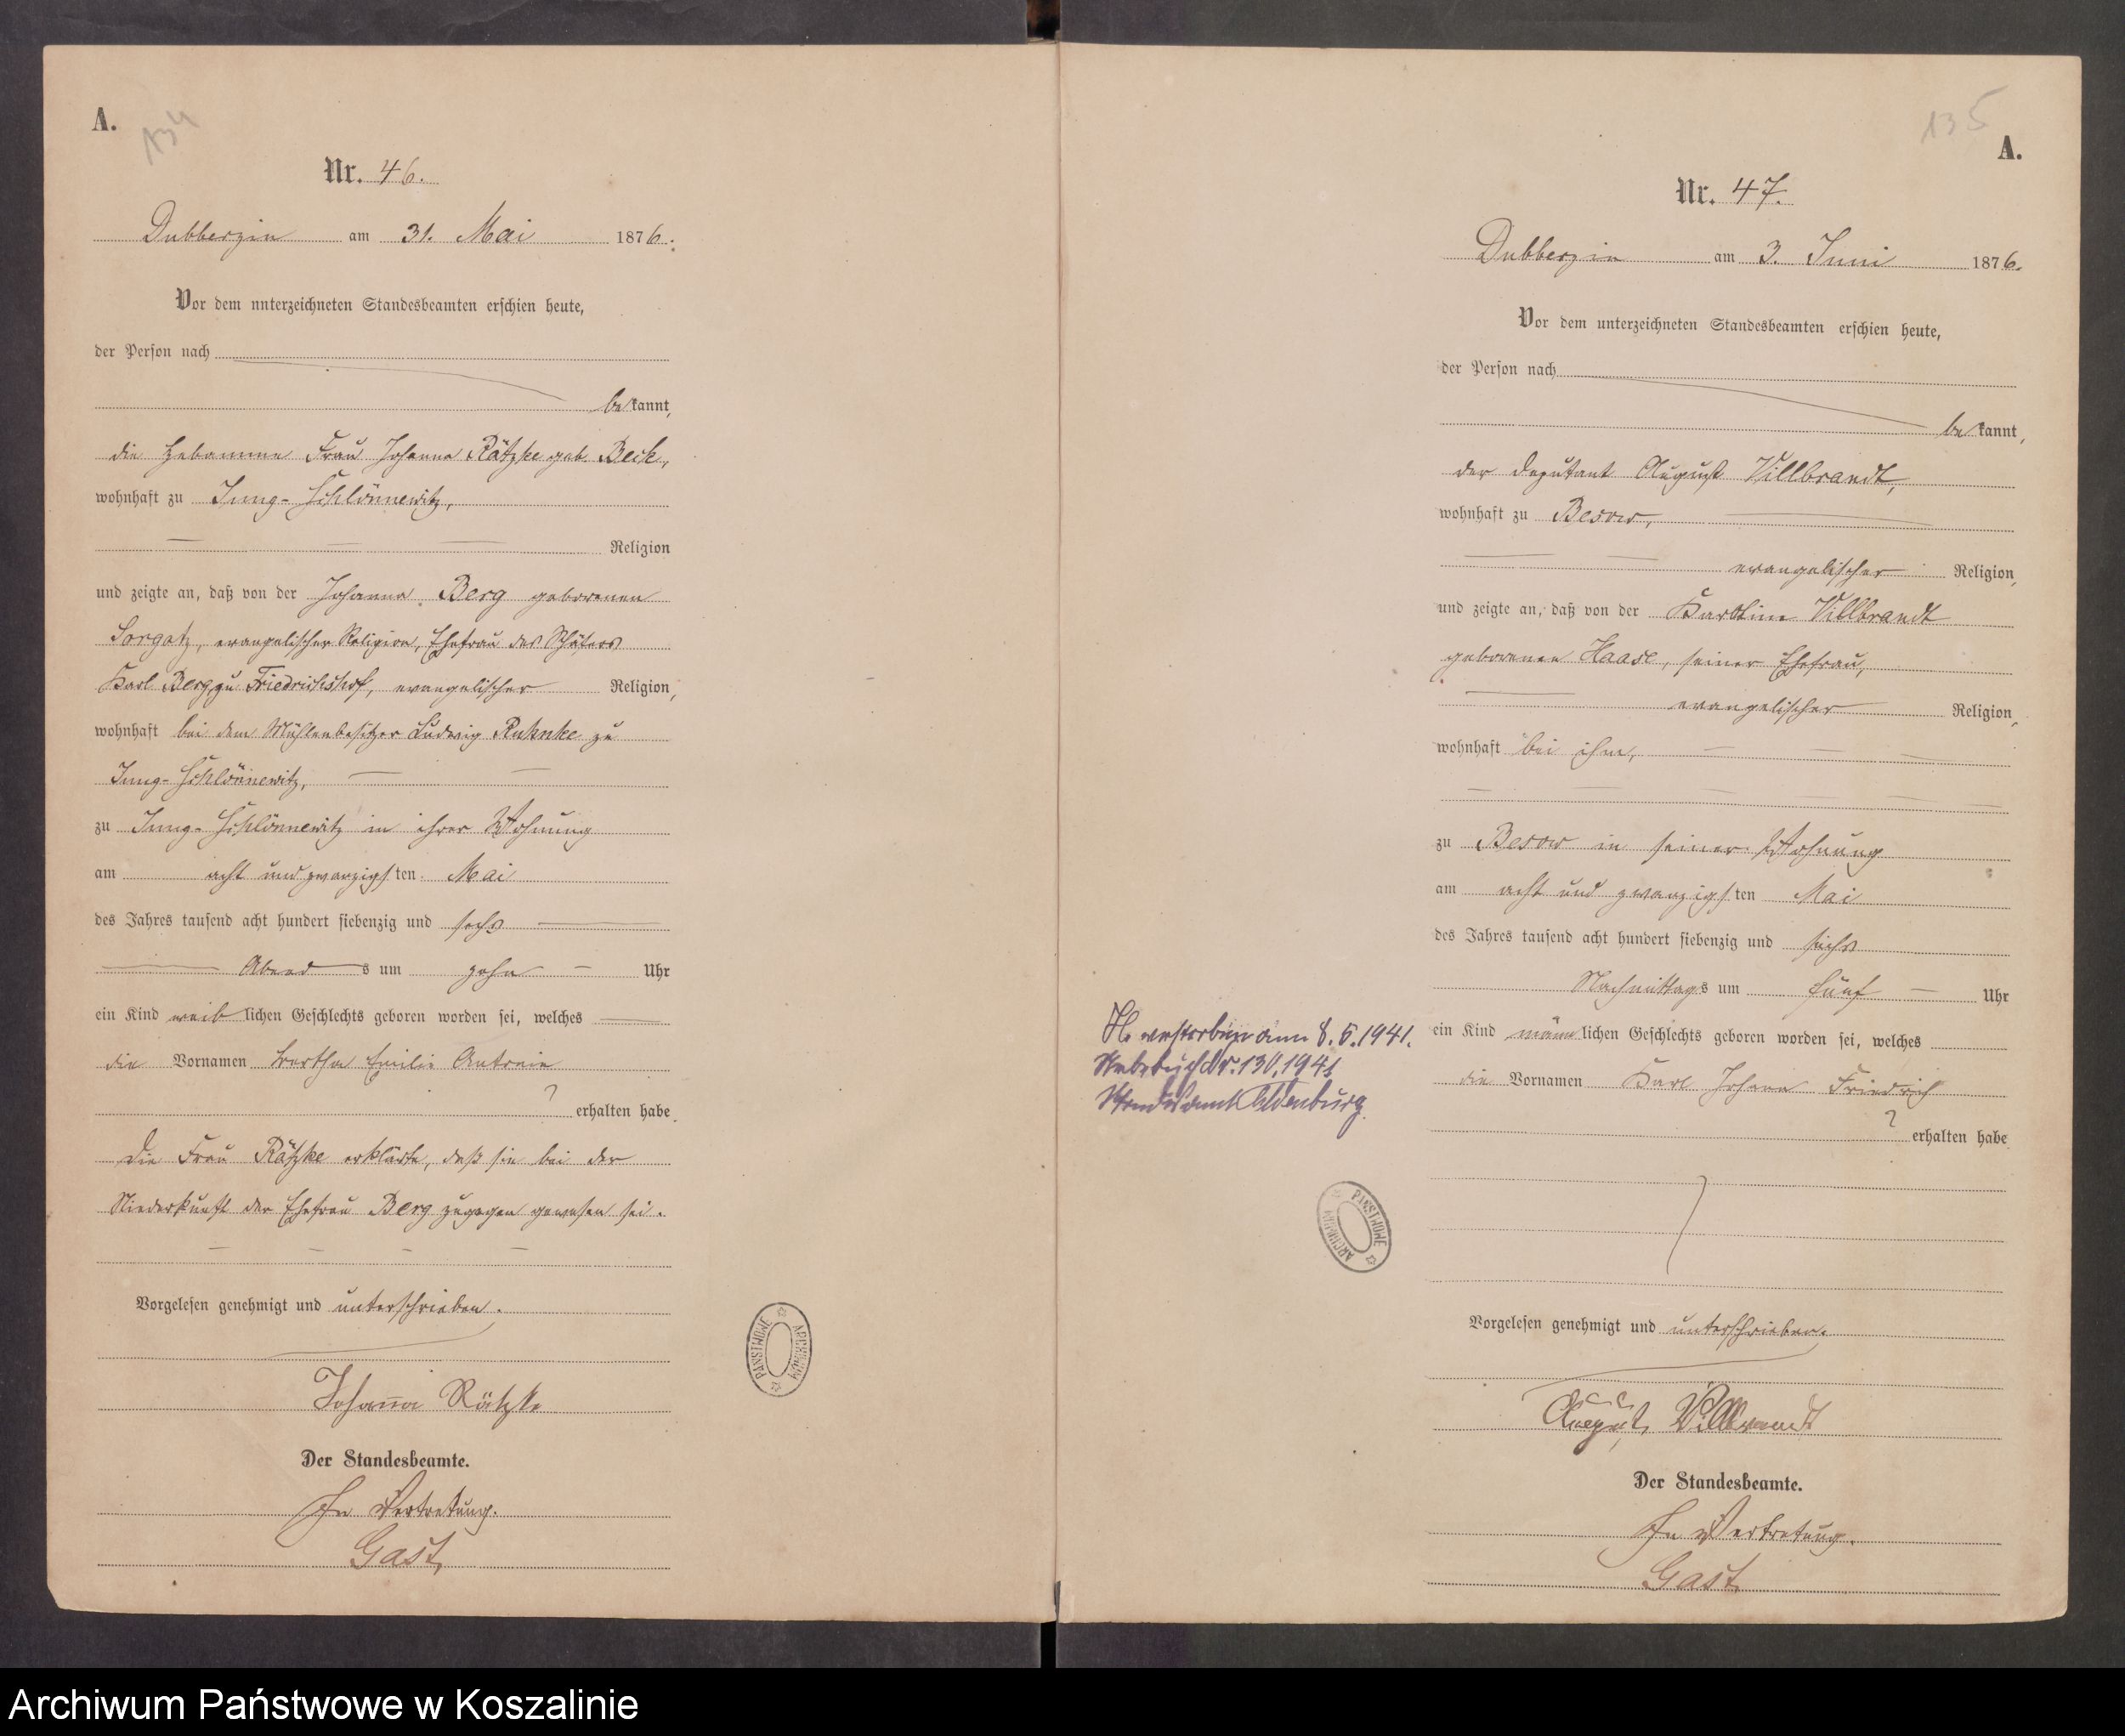 A.
134
Nr. 46.
Dubberzin am 31. Mai 1876.
Vor dem unterzeichneten Standesbeamten erschien heute,
der Person nach
bekannt,
die Hebamme Frau Johanna Rätzke geb. Beck,
wohnhaft zu Jung-Schlönnewitz,
Religion
und zeigte an, daß von der Johanna Berg geborenen
Sorgatz, evangelischer Religion, Ehefrau des Schäfers
Karl Berg zu Friedrichshof, evangelischer Religion,
wohnhaft bei dem Mühlenbesitzer Ludwig Ruhnke zu
Jung-Schlönnewitz,
zu Jung-Schlönnewitz in ihrer Wohnung
am acht und zwanzigsten Mai
des Jahres tausend acht hundert siebenzig und sechs
Abends um zehn Uhr
ein Kind weiblichen Geschlechts geboren worden sei, welches
die Vornamen Bertha Emilie
erhalten habe.
Die Frau Rätzke erklärte, daß sie bei der
Niederkunft der Ehefrau Berg zugegen gewesen sei.
Vorgelesen genehmigt und unterschrieben.
Johanna Rätzke
Der Standesbeamte.
In Vertretung.
Gast
ARCHIWUM PAŃSTWOWE
135
A.
Nr. 47.
Dubberzin am 3. Juni 1876.
Vor dem unterzeichneten Standesbeamten erschien heute,
der Person nach
bekannt,
der Deputant August Villbrandt,
wohnhaft zu Besow,
evangelischer Religion,
und zeigte an, daß von der Karoline Villbrandt
geborenen Haase, seiner Ehefrau,
evangelischer Religion,
wohnhaft bei ihm,
zu Besow in seiner Wohnung
am acht und zwanzigsten Mai
des Jahres tausend acht hundert siebenzig und sechs
Nachmittags um fünf Uhr
ein Kind männlichen Geschlechts geboren worden sei, welches
die Vornamen Karl Johann Friedrich
erhalten habe
Vorgelesen genehmigt und unterschrieben.
August Villbrandt
Der Standesbeamte.
In Vertretung.
Gast
verstorben am 8.5.1941.
Sterbebuch Nr. 130.1941
Standesamt Oldenburg
ARCHIWUM PAŃSTWOWE
Archiwum Państwowe w Koszalinie